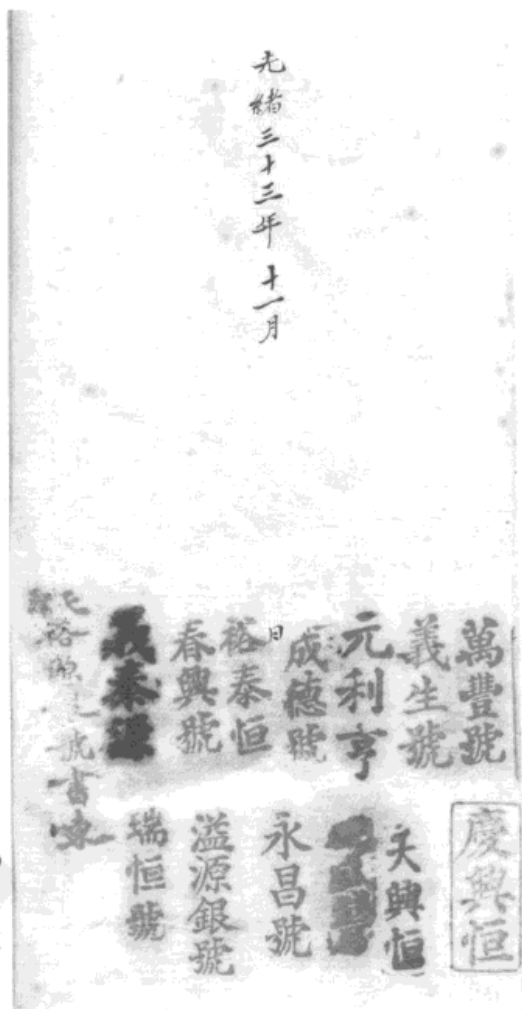 光緒三十三年 十一月
日
萬豐號
義生號
元利亨
成德號
裕泰恒
春興號
義泰
慶興恒
天興恒
永昌號
溢源銀號
瑞恒號